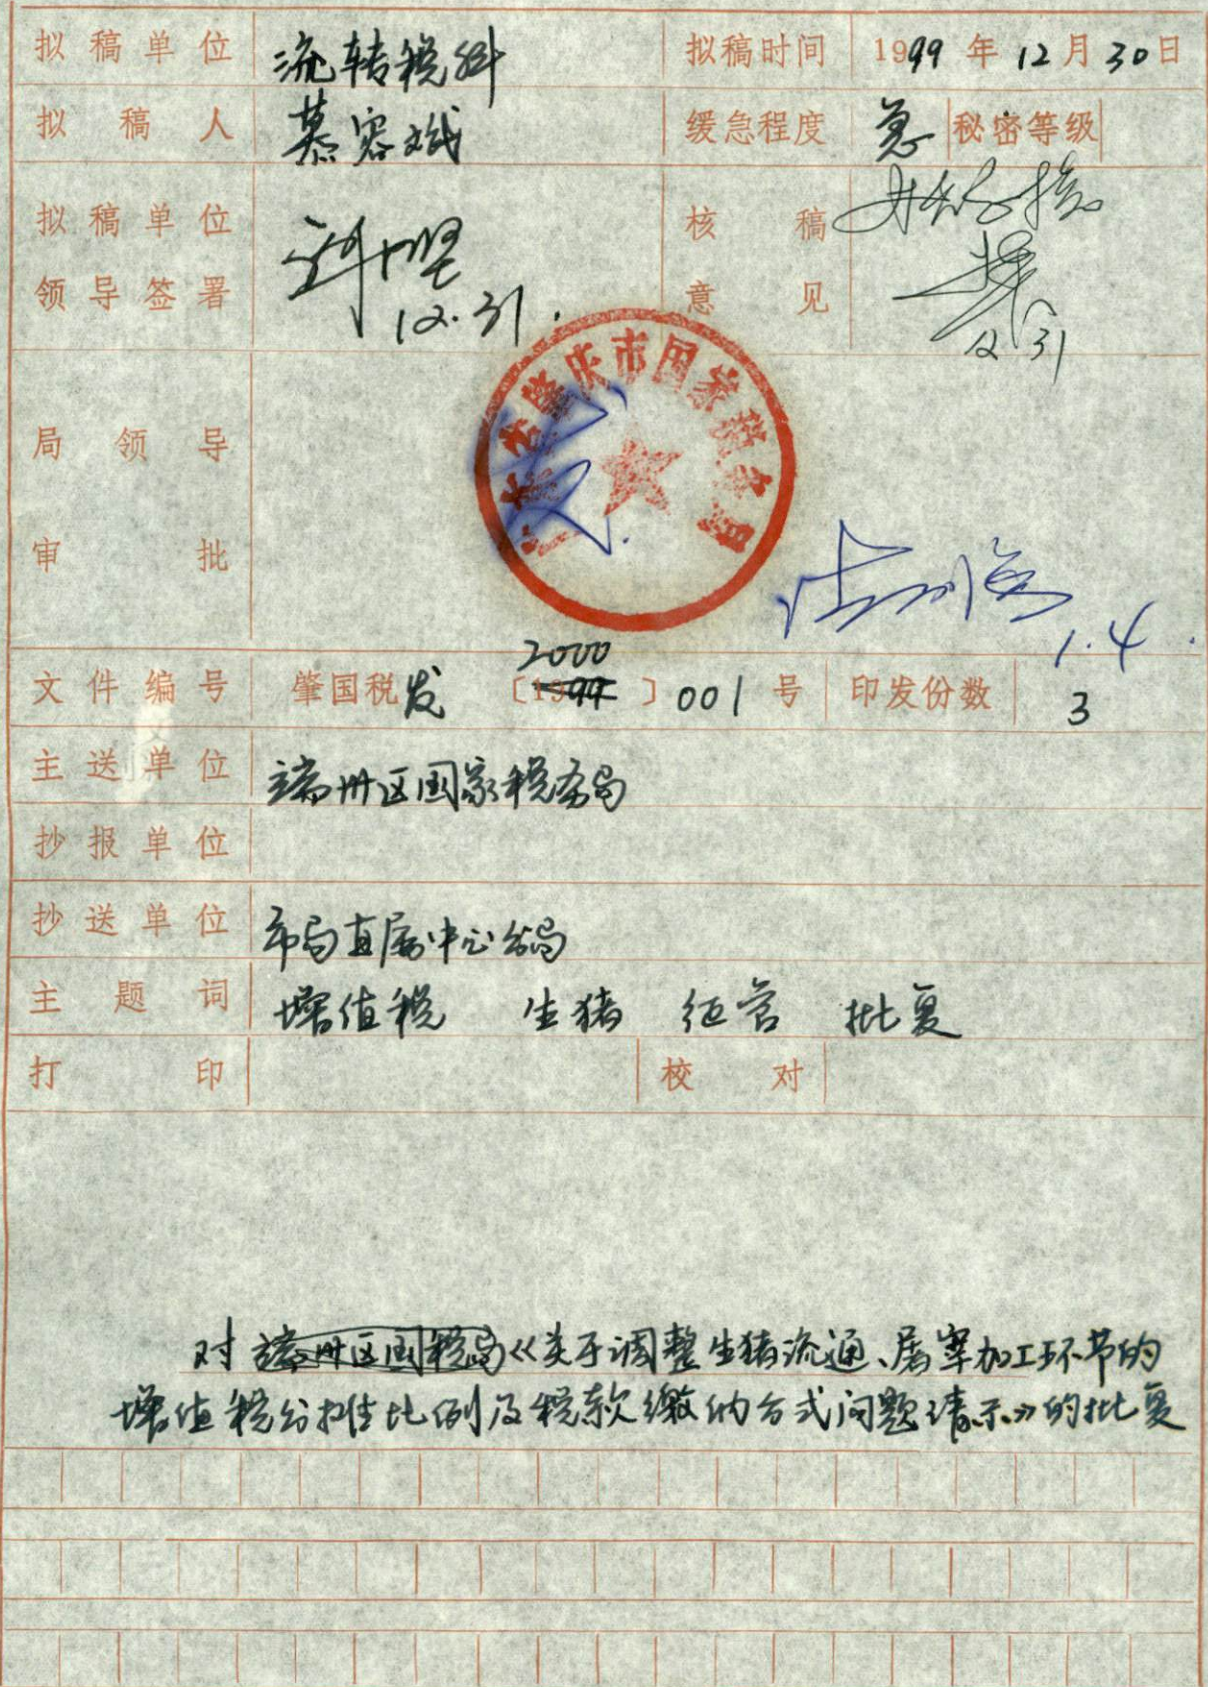 拟稿单位 流转税科 拟稿时间 1999年12月30日
拟稿人 慕容斌 缓急程度 急 秘密等级
拟稿单位 核稿
领导签署 12.31. 意见 12/31
广东省肇庆市国家税务局
局领导
审批
1.4.
文件编号 肇国税发〔2000〕001号 印发份数 3
主送单位 端州区国家税务局
抄报单位
抄送单位 市局直属中心分局
主题词 增值税 生猪 征管 批复
打印 校对
对端州区国税局《关于调整生猪流通、屠宰加工环节的
增值税分摊比例及税款缴纳方式问题请示》的批复